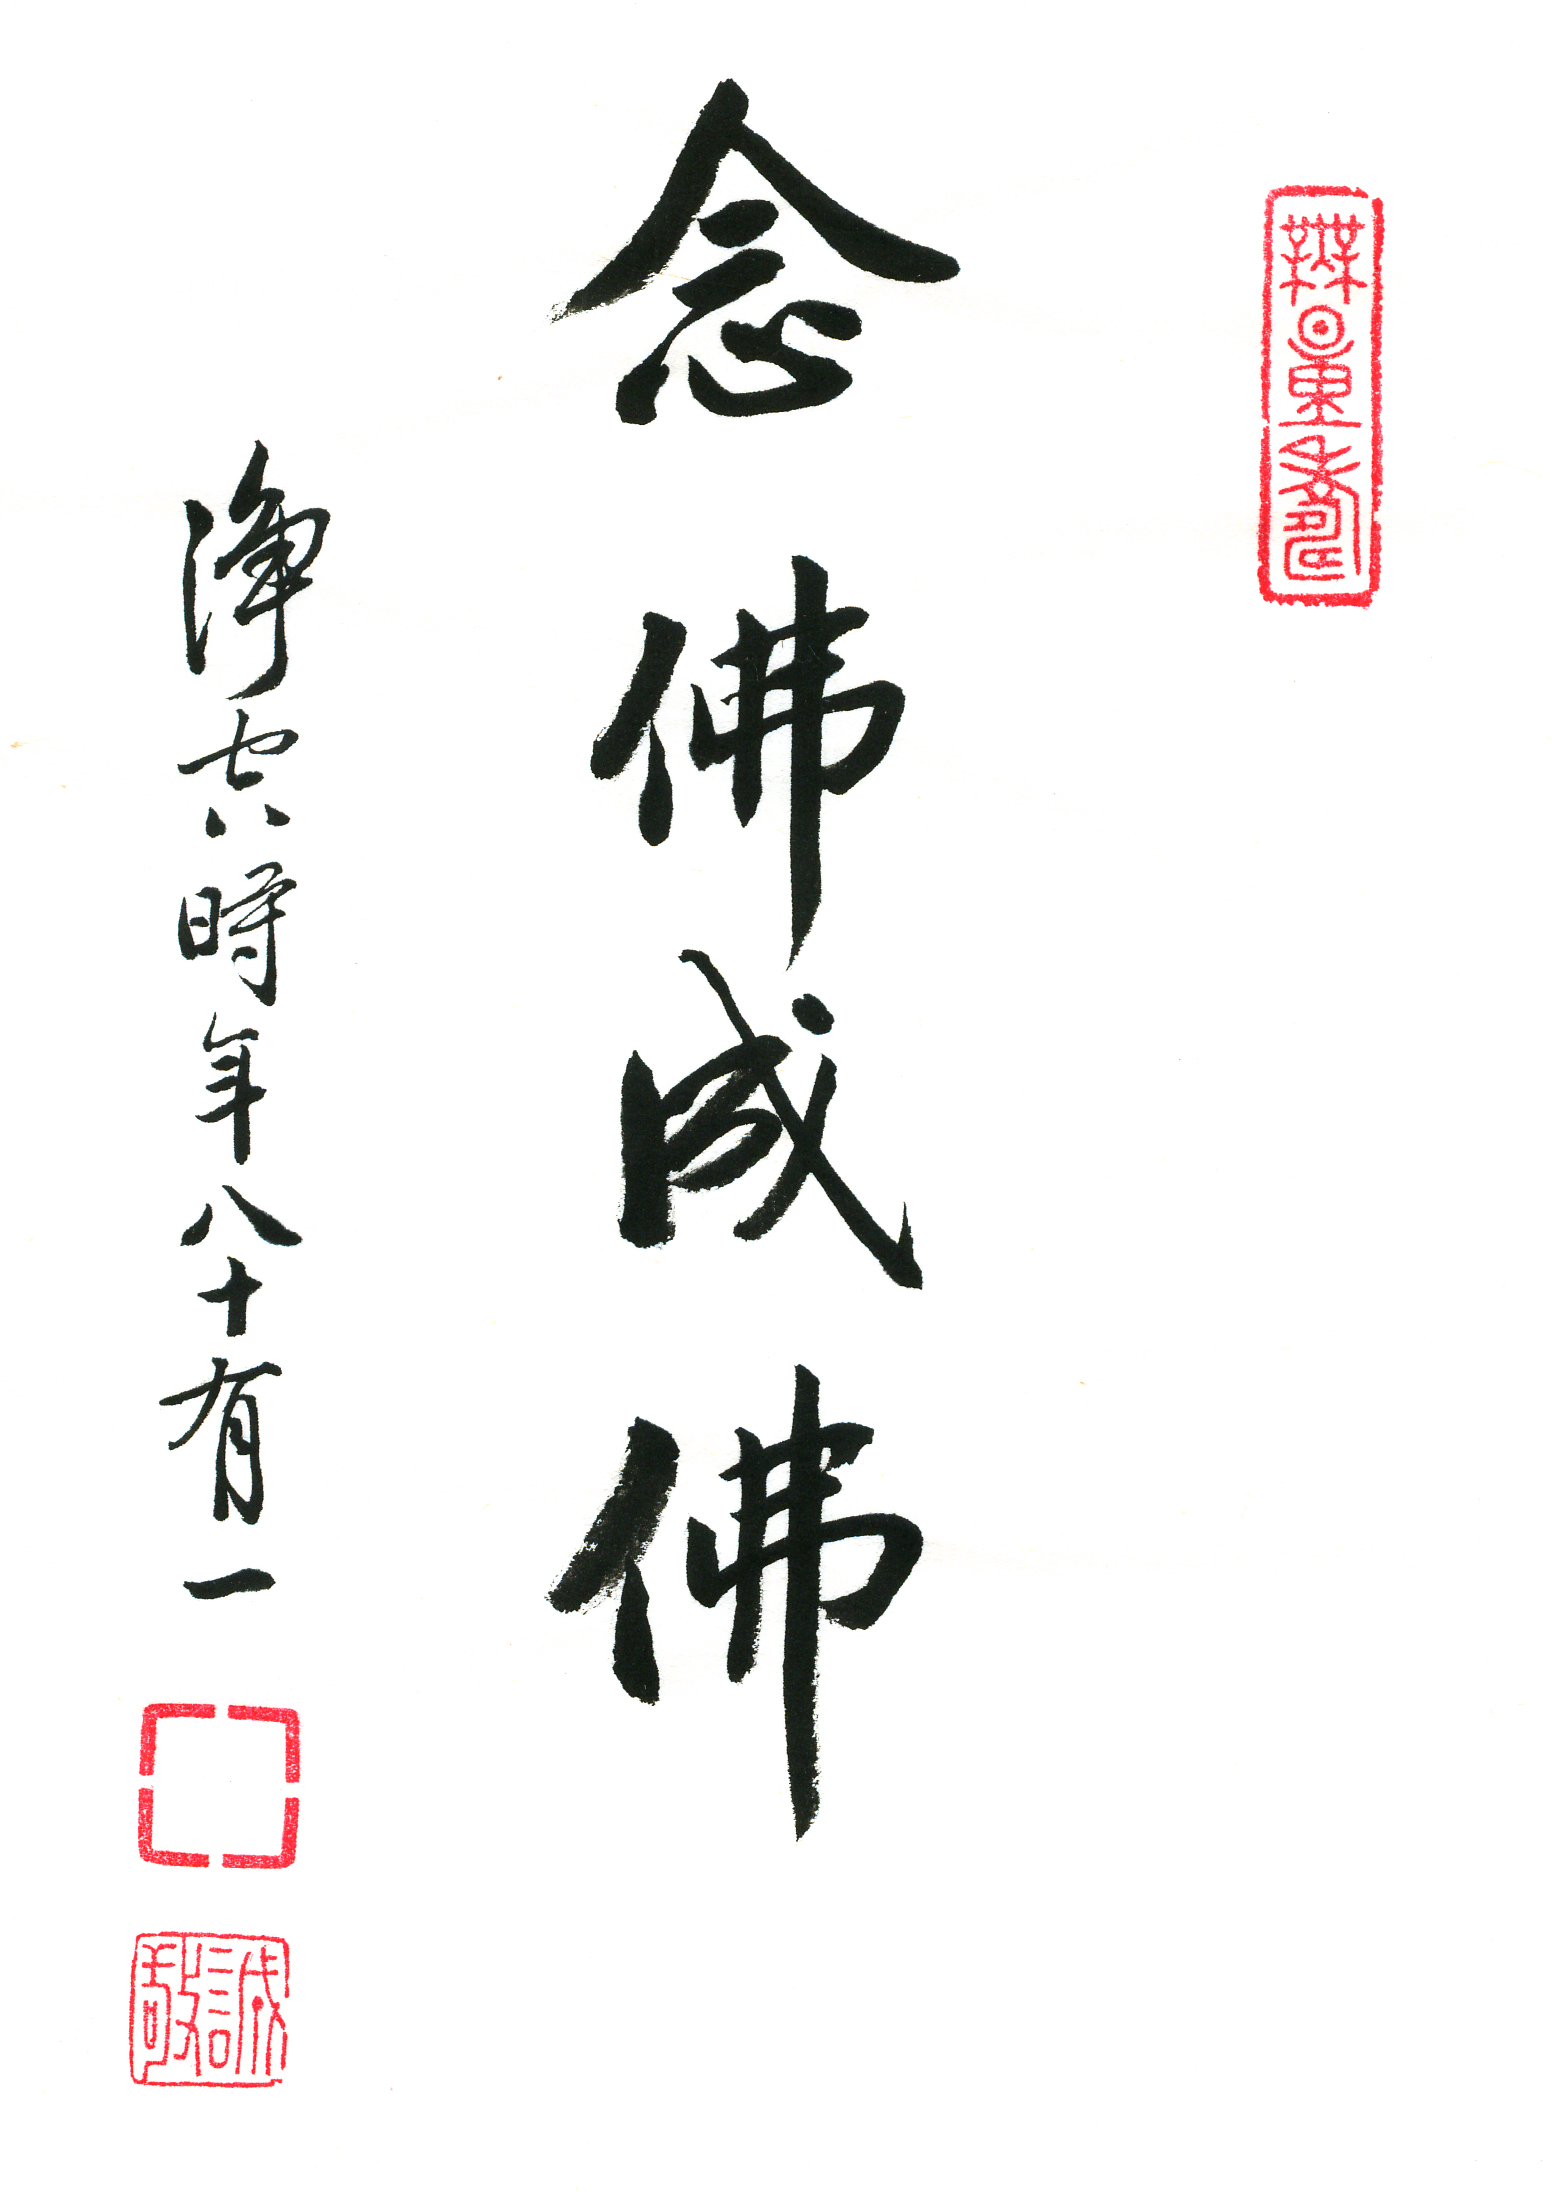 無量壽
念佛成佛
淨空時年八十有一
誠敬